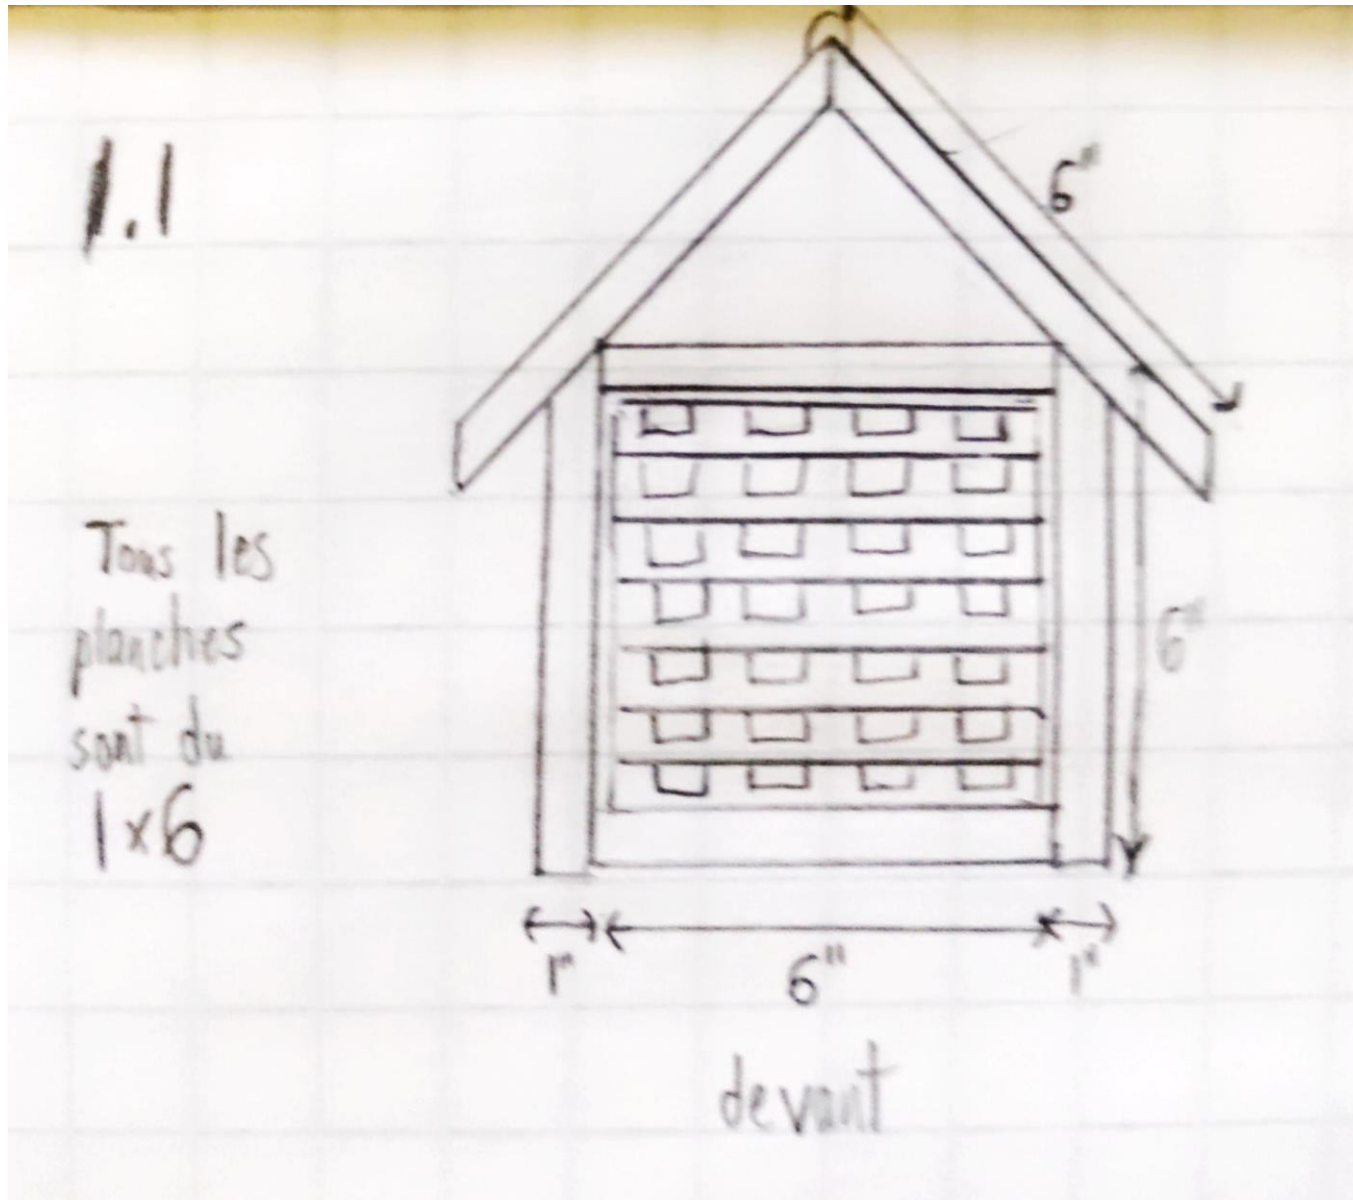 1.1
6"
Tous les
planches
sont du
1x6
6"
1" 6" 1"
devant